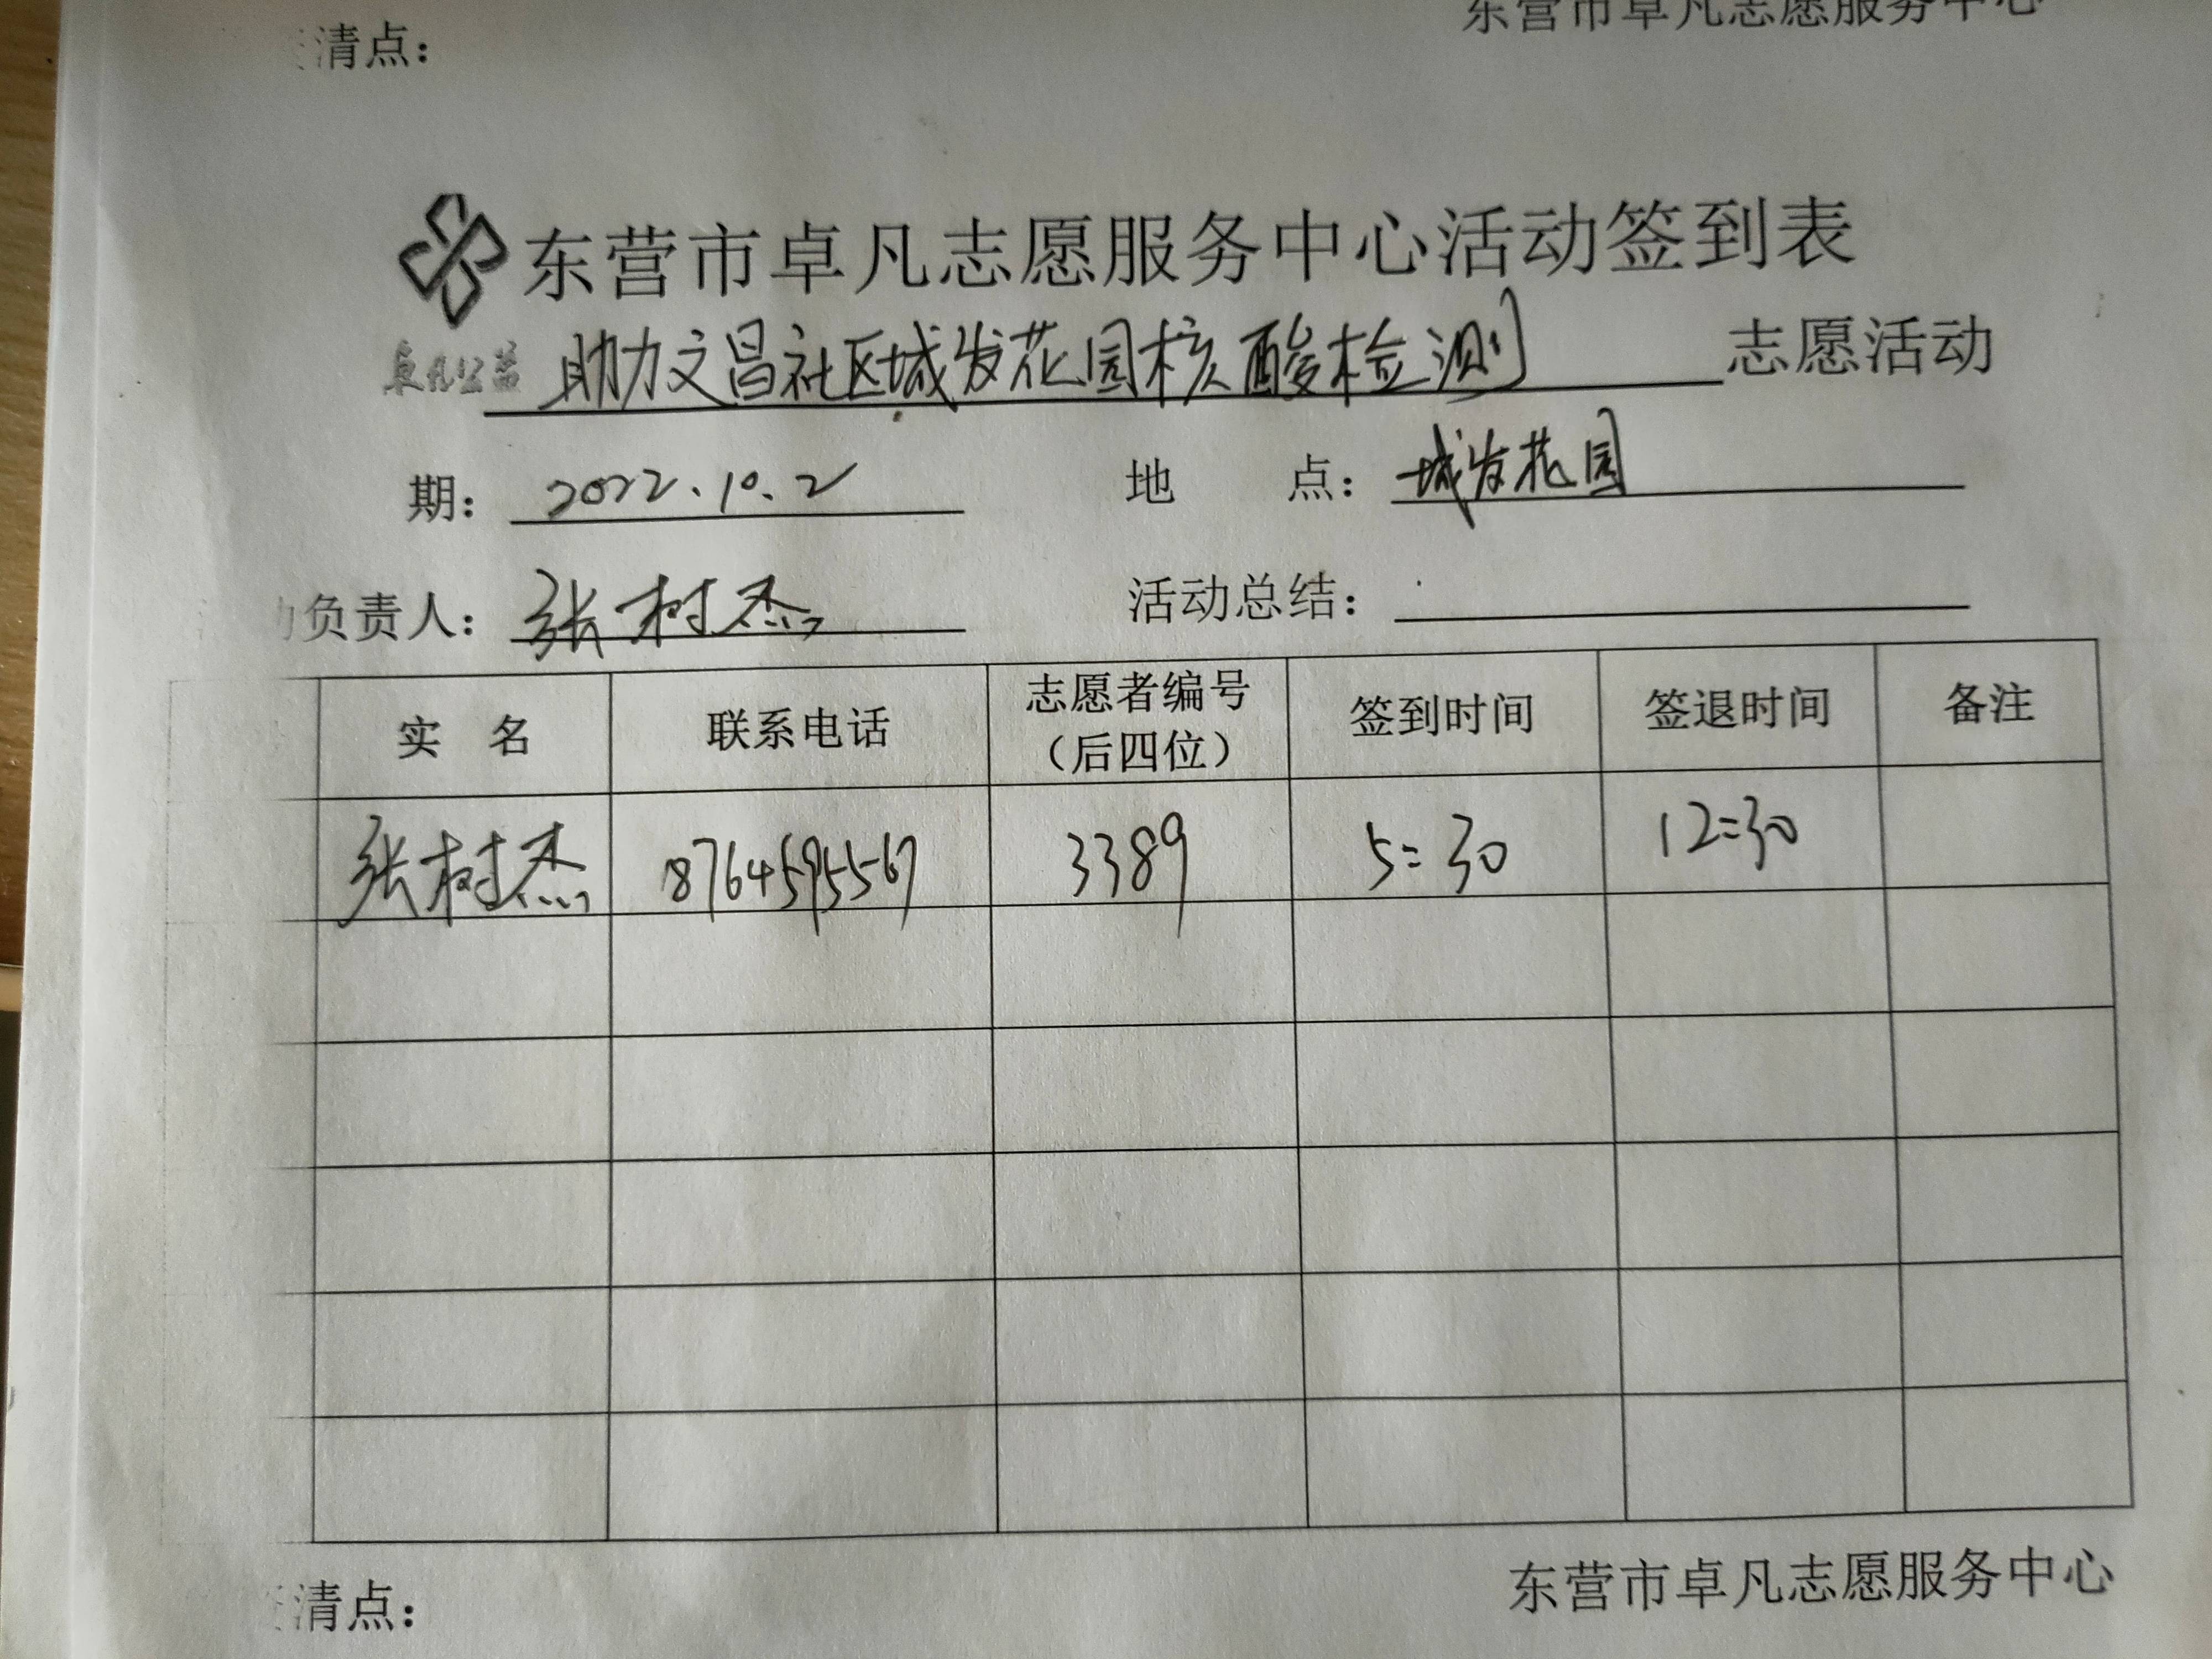 东营市卓凡志愿服务中心
清点：
东营市卓凡志愿服务中心活动签到表
卓凡公益 助力文昌社区城发花园核酸检测 志愿活动
期： 2022.10.2 地 点： 城发花园
负责人： 张树杰 活动总结：
实 名 联系电话 志愿者编号（后四位） 签到时间 签退时间 备注
张树杰 18764595567 3389 5:30 12:30
清点： 东营市卓凡志愿服务中心